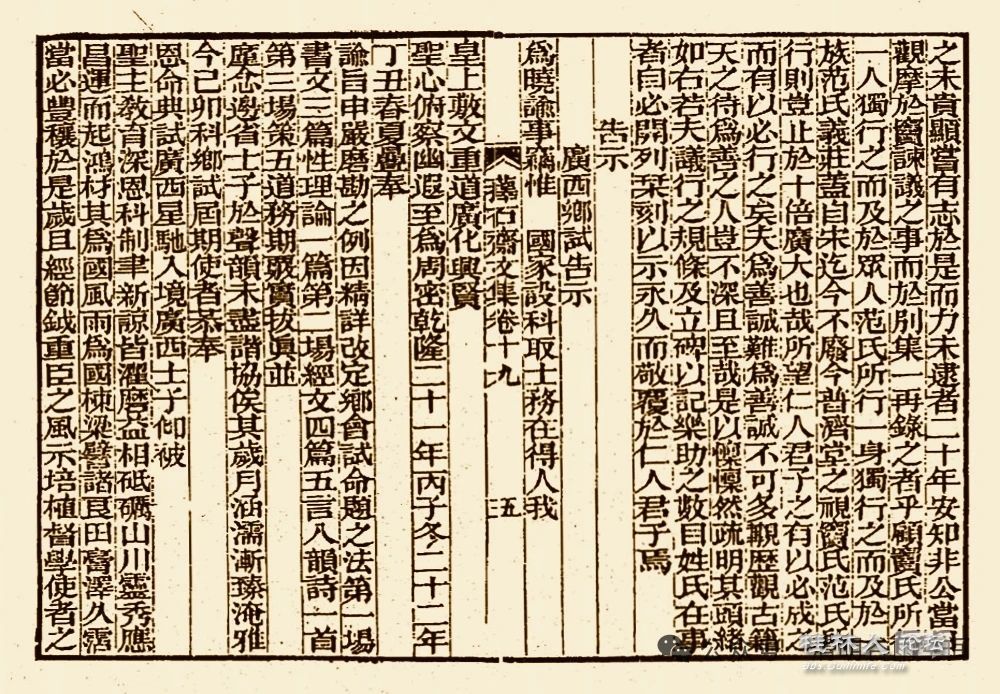 之未貴顯嘗有志於是而力未逮者二十年安知非公當日
觀摩於竇諫議之事而於別集一再錄之者乎顧竇氏所行
一人獨行之而及於眾人范氏所行一身獨行之而及於一
族范氏義莊蓋自宋迄今不廢今普濟堂之視竇氏范氏
行則豈止於十倍廣大也哉所望仁人君子之有以必成之
而有以必行之矣夫為善誠難為善誠不可多覯歷觀古籍
天之待為善之人豈不深且至哉是以懍懍然疏明其頭緒
如右若夫議行之規條及立碑以記樂助之數目姓氏在事
者自必開列栞刻以示永久而敬覆於仁人君子焉
告示
廣西鄉試告示
為曉諭事竊惟 國家設科取士務在得人我
蘀石齋文集卷十九 五
皇上敷文重道廣化興賢
聖心俯察幽遐至為周密乾隆二十一年丙子冬二十二年
丁丑春夏疊奉
諭旨申嚴磨勘之例因精詳改定鄉會試命題之法第一場
書文三篇性理論一篇第二場經文四篇五言八韻詩一首
第三場策五道務期覈實拔真並
廑念邊省士子於聲韻未盡諧協俟其歲月涵濡漸臻淹雅
今己卯科鄉試屆期使者恭奉
恩命典試廣西星馳入境廣西士子仰被
聖主教育深恩科制聿新諒皆濯磨益相砥礪山川靈秀應
昌運而起鴻材其為國風雨為國棟梁譬諸良田膏澤久霑
當必豐穰於是歲且經節鉞重臣之風示培植督學使者之
桂林人论坛
bbs.guilinlife.com